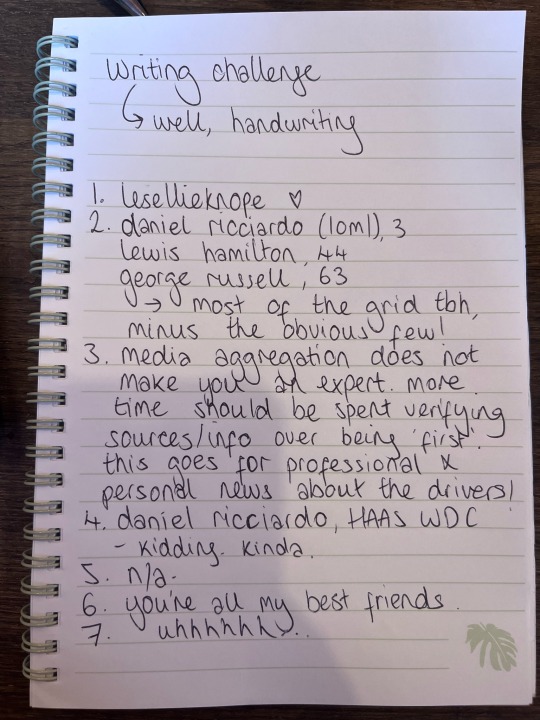 Writing challenge
↳ well, handwriting
1. lesellieknope ♡
2. daniel ricciardo (lol), 3
lewis hamilton, 44
george russell, 63
→ most of the grid tbh,
minus the obvious few!
3. media aggregation does not
make you an expert. more
time should be spent verifying
sources/info over being 'first'.
this goes for professional &
personal news about the drivers!
4. daniel ricciardo, HAAS WDC
- kidding. kinda.
5. n/a.
6. you're all my best friends.
7. uhhhhhh...